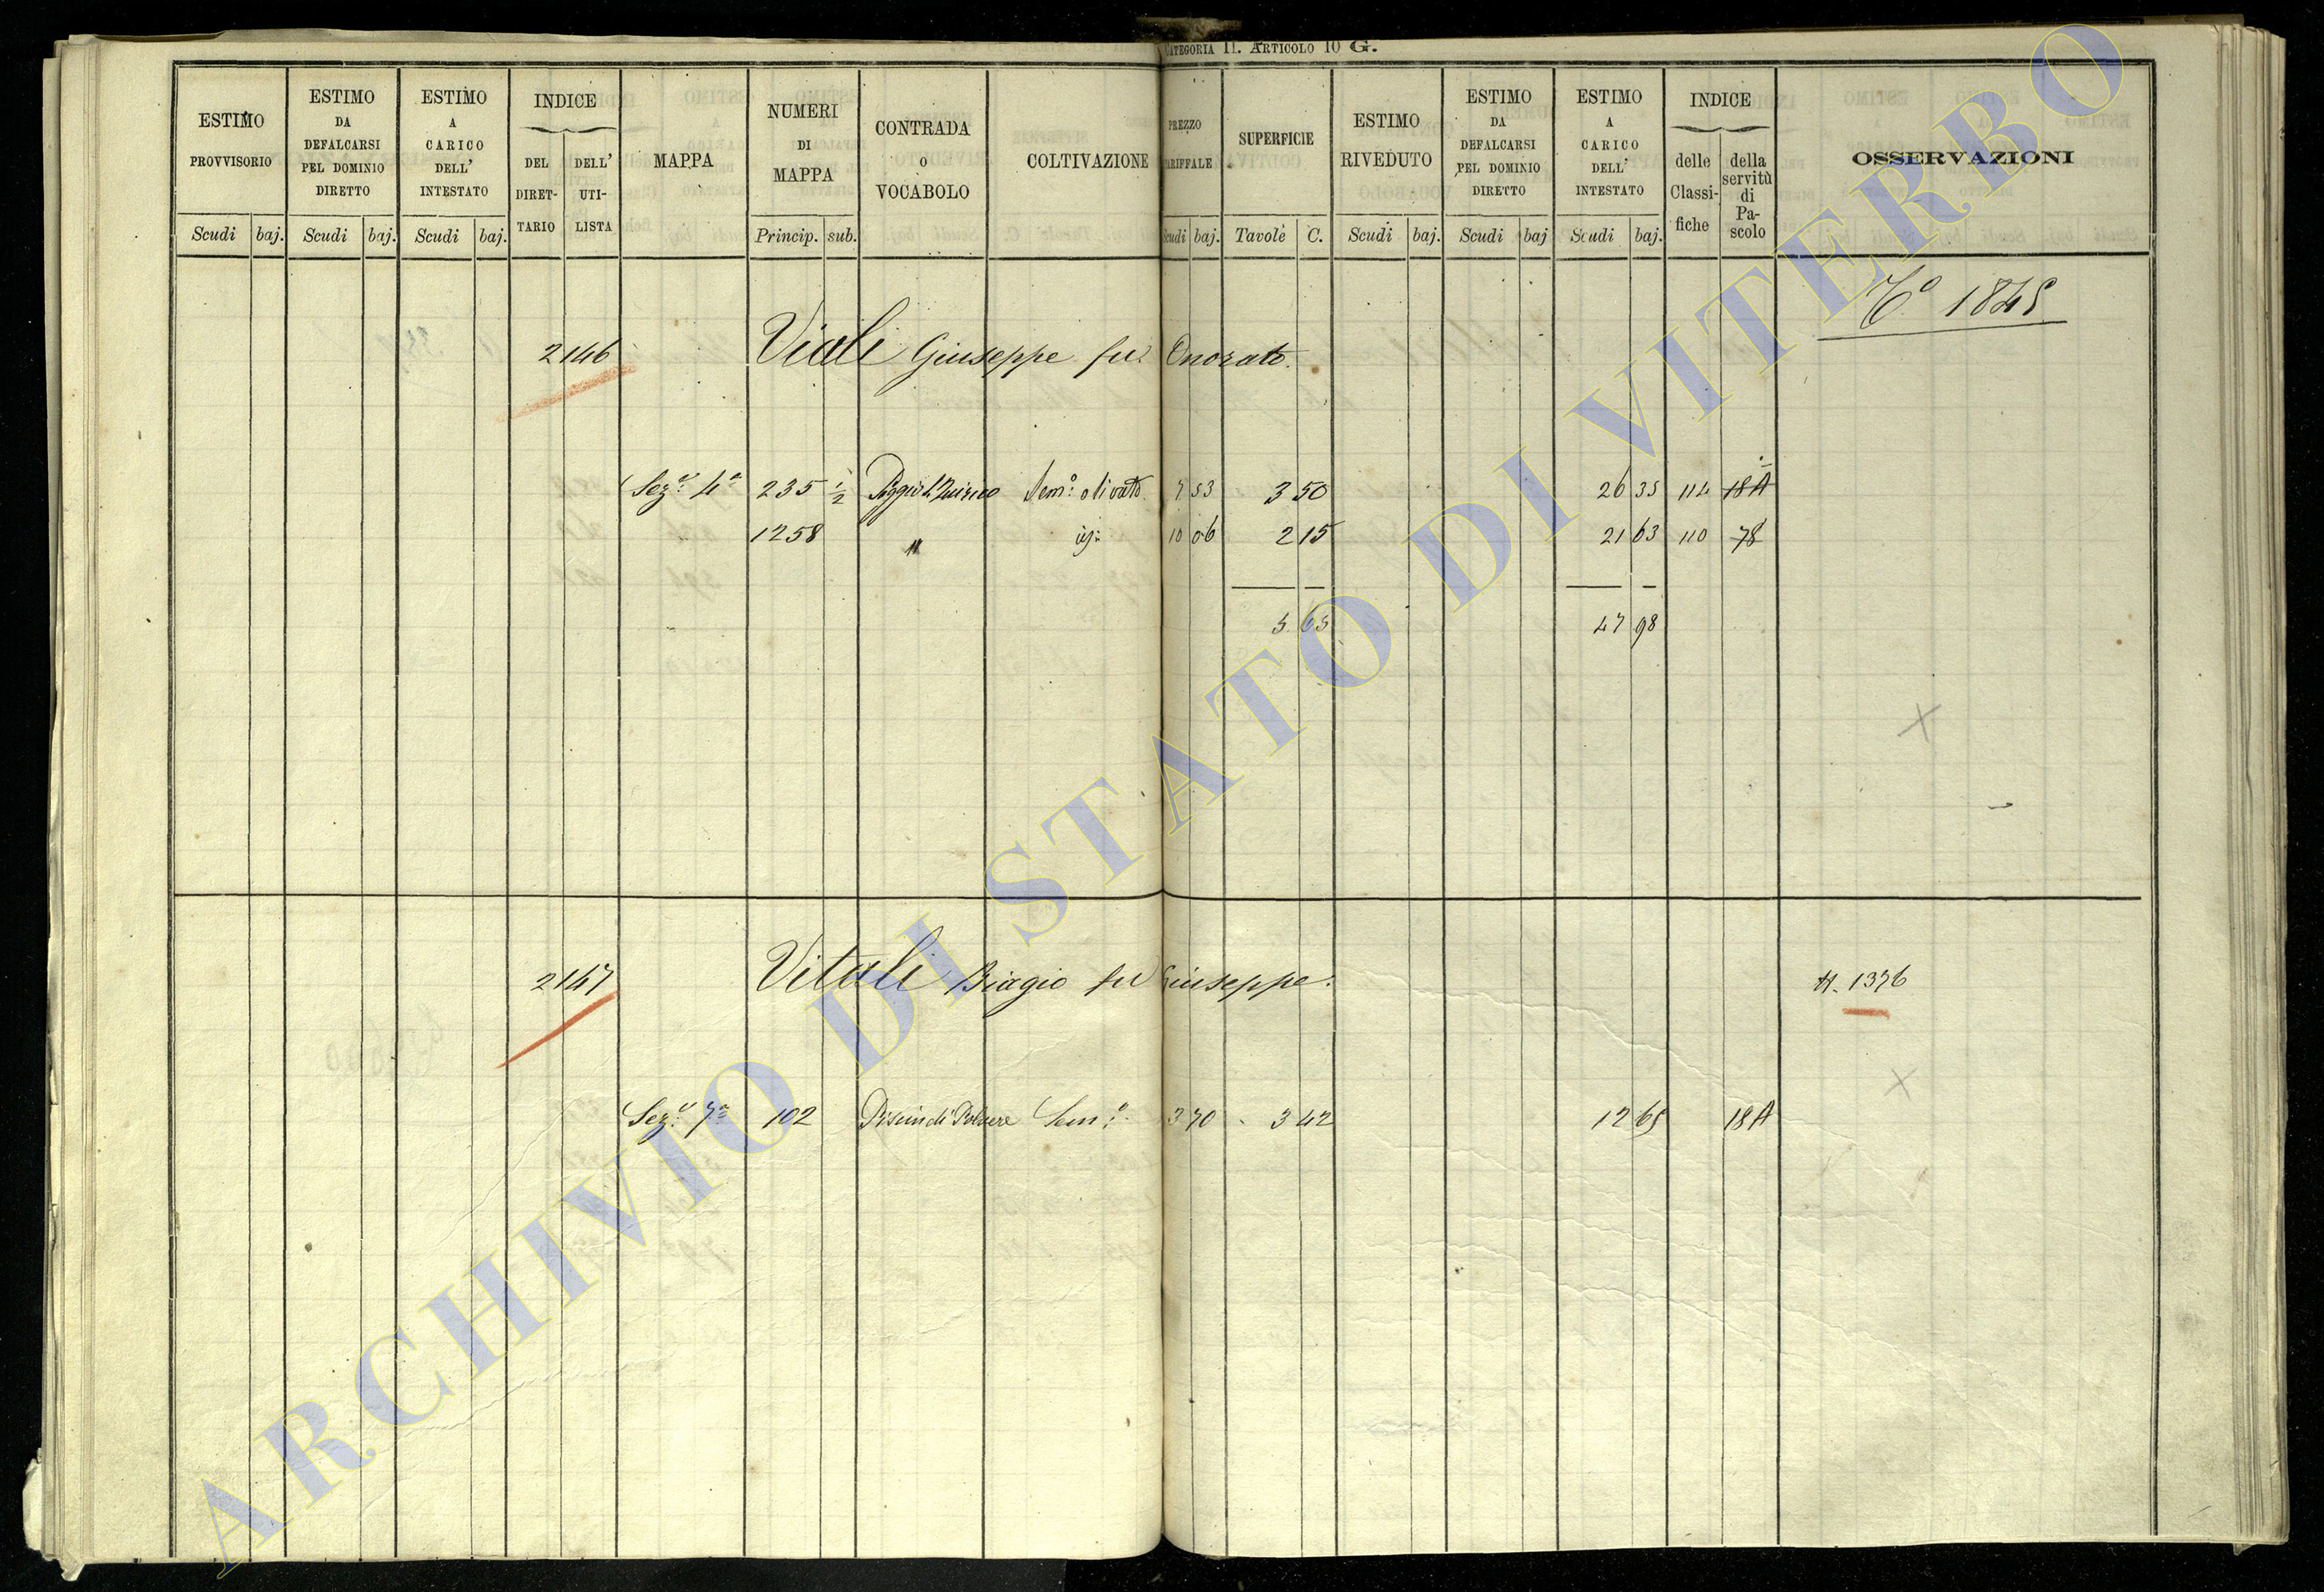 CATEGORIA II. ARTICOLO 10 G.
ESTIMO PROVVISORIO
Scudi baj.
ESTIMO DA DEFALCARSI PEL DOMINIO DIRETTO
Scudi baj.
ESTIMO A CARICO DELL' INTESTATO
Scudi baj.
INDICE
DEL DIRETTARIO
DELL' UTILISTA
MAPPA
NUMERI DI MAPPA
Princip. sub.
CONTRADA O VOCABOLO
COLTIVAZIONE
PREZZO TARIFFALE
Scudi baj.
SUPERFICIE
Tavole C.
ESTIMO RIVEDUTO
Scudi baj.
ESTIMO DA DEFALCARSI PEL DOMINIO DIRETTO
Scudi baj
ESTIMO A CARICO DELL' INTESTATO
Scudi baj.
INDICE
delle Classifiche
della servitù di Pascolo
OSSERVAZIONI
1845
2146 Viali Giuseppe fu Onorato.
Sez.e 4a 235 1/2 Poggio S. Quirico Sem.o olivato 7 53 3 50 26 35 114 18A
1258 " id. 10 06 2 15 21 63 110 78
5 65 47 98
2147 Vitali Biagio fu Giuseppe. 1376
Sez.e 7a 102 Sem.o 3 70 3 42 12 65 18A
ARCHIVIO DI STATO DI VITERBO